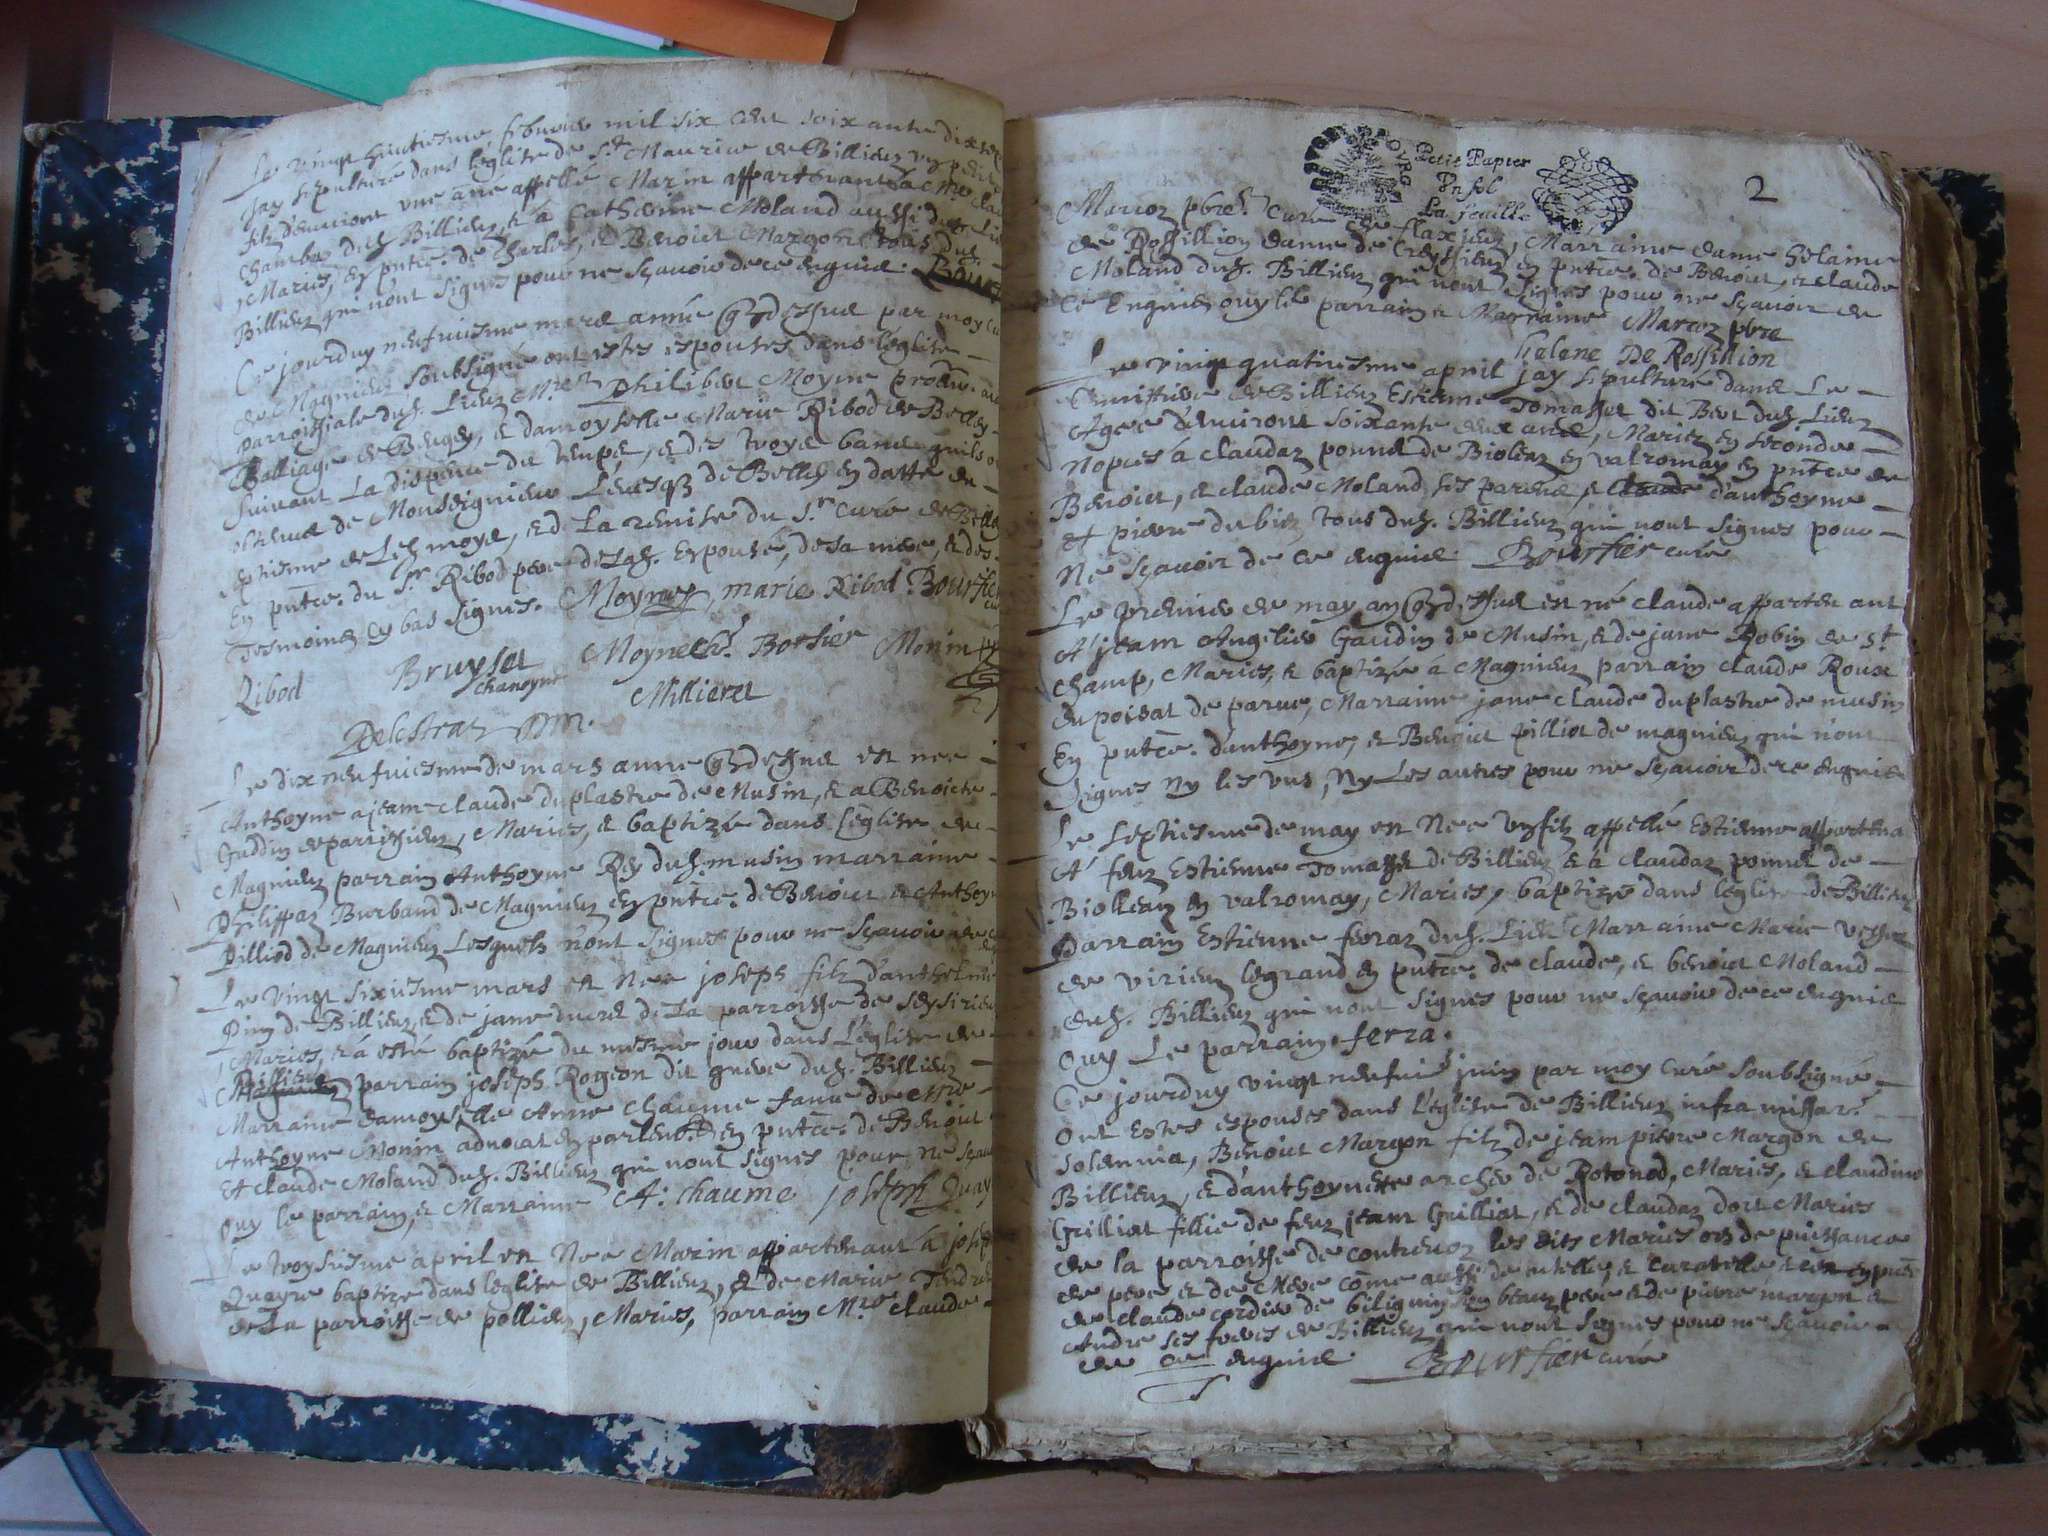 Le vingt huictiesme febvrier mil six cent soixante dix sep
jay sepulturé dans leglise de St. Maurice de Billieu un petit
filz denviront une anné appellé Marin appartenant à Mre clau
Chamba dud. Billieu, et à Catherine Moland aussi dud. Lieu
Mariés, En pntce. de Charles, et Benoict Margon tous dud.
Billieu qui nont signés pour ne sçavoir de ce enquis.
Ce jourduy neufuiesme mars année que dessus par moy cu
de Magnieu soubsigné ont estes espouses dans leglise
parroissiale dud. Lieu Mre. Philibert Moyne procur. au
Balliage de Bugey, et damoyselle Marie Ribod de Belley
suivant La dispence du temps, et des troys bans quils o
obtenus de Monseigneur Levesq de Belley en datte du
septiesme de ce moys, et de La remise du Sr. curé de Belley
En pntce. du Sr. Ribod pere de lad. Espouse, de sa mere, et des
tesmoins cy bas signés. Moyne, marie Ribod Bourssier
Ribod Bruyset Moyne Borssier Monin
chanoyne Millieret
Delestraz
Le dix neufuiesme de mars anne que dessus est nee
Anthoyne a jeam claude duplastre de Musin, et a Benoicte
Guddin de parrissieu, Mariés, et baptizé dans leglise de
Magnieu parrain Anthoyne Rey dud. musin marraine
Philippaz Burbaud de Magnieu En pntce. de Benoict et Anthoyn
Pilliod de Magnieu Lesquels nont signes pour ne sçavoir de
Le vingt sixiesme mars est Nee joseph filz danthelme
Pin de Billieu, et de jane ducret de La parroisse de Seysirieu
Mariés, et à esté baptizé du mesme jour dans Leglise de
Billieu parrain joseph Rogeon dit greve dud. Billieu
Marraine damoyselle Anne Chaume fame de Mre
Anthoyne Monin advocat en parlemt. en pntce. de Benoict
et claude Moland dud. Billieu qui nont signes pour ne sçau
ouy le parrain, et Marraine A. chaume joseph
Le troysiesme april est Nee Marin appartenant à jose
Quayre baptize dans leglise de Billieu, et de Marie
de La parroisse de pollieu, Mariés, parrain Mre. claude
Petit Papier
Un sol
La feuille
2
Marcoz pbre. Cure de flaxieu, Marraine dame helaine
de Rossillion dame de Creyssieu en pntce. de Benoict, et claude
Moland dud. Billieu qui nont signes pour ne sçavoir de
ce Enquis ouy led parrain et Marraine Marcoz pbre
helene De Rossillion
Le vingt quatriesme april jay sepulturé dans Le
Cemittiere de Billieu Estienne Tomasset dit Bert dud. Lieu
Agee denviront soixante deux ans, Mariez en seconde
nopces à claudaz ponnet de Bioleaz en valromay en pntce de
Benoict, et claude Moland ses parens, et danthoyne
et pierre du biez tous dud. Billieu qui nont signes pour
Ne sçavoir de ce enquis Bourssier curé
Le premier de may an que dessus est né claude appartenant
A jeam Angelier Gaudin de Musin, et de jane Robin de St
champ, Mariés, et baptizée a Magnieu parrain claude Roux
du poisat de parve, Marraine jane claude duplastre de musin
En pntce. danthoyne, et Benoict pilliot de magnieu qui nont
signes ny les uns, Ny Les autres pour ne sçavoir de ce enquis
Le septiesme de may est Nee un filz appellé Estienne appartena
A feuz Estienne Tomasset de Billieu et à claudaz ponnet de
Biolleaz en valromay, Mariés, baptizé dans leglise de Billieu
Parrain Estienne ferraz dud. Lieu Marraine Marie
de virieu legrand en pntce. de claude, et benoict Moland
dud. Billieu qui nont signes pour ne sçavoir de ce enquis
ouy Le parrain. ferra.
Ce jourduy vingt neufuies juin par moy curé soubsigné
ont estes espouses dans leglise de Billieu infra missar.
solemnia, Benoict Margon filz de jeam pierre Margon de
Billieu, et danthoynette archer de Rotonod, Mariés, et claudine
Grilliat fillie de feuz jeam Grilliat, et de claudaz dort Mariés
de la parroisse de contrevoz les dits Mariés ors de puissance
de pere et de Mere come aussi de tutelle, et curatelle en pntce
de claude cordier de biliguin son beau pere et de pierre margon et
Andre ses freres de Billieu qui nont signes pour ne sçavoir
de ce enquis Bourssier curé